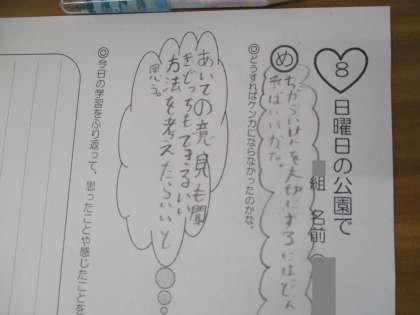 8 日曜日の公園で
組 名前
め ちがういけんを大切にするにはどん
ればいいかな。
◎どうすればケンカにならなかったのかな。
あいての意見も聞
きどっちもできるいい
方法を考えたらいいと
思う。
◎今日の学習をふり返って、思ったことや感じたことを